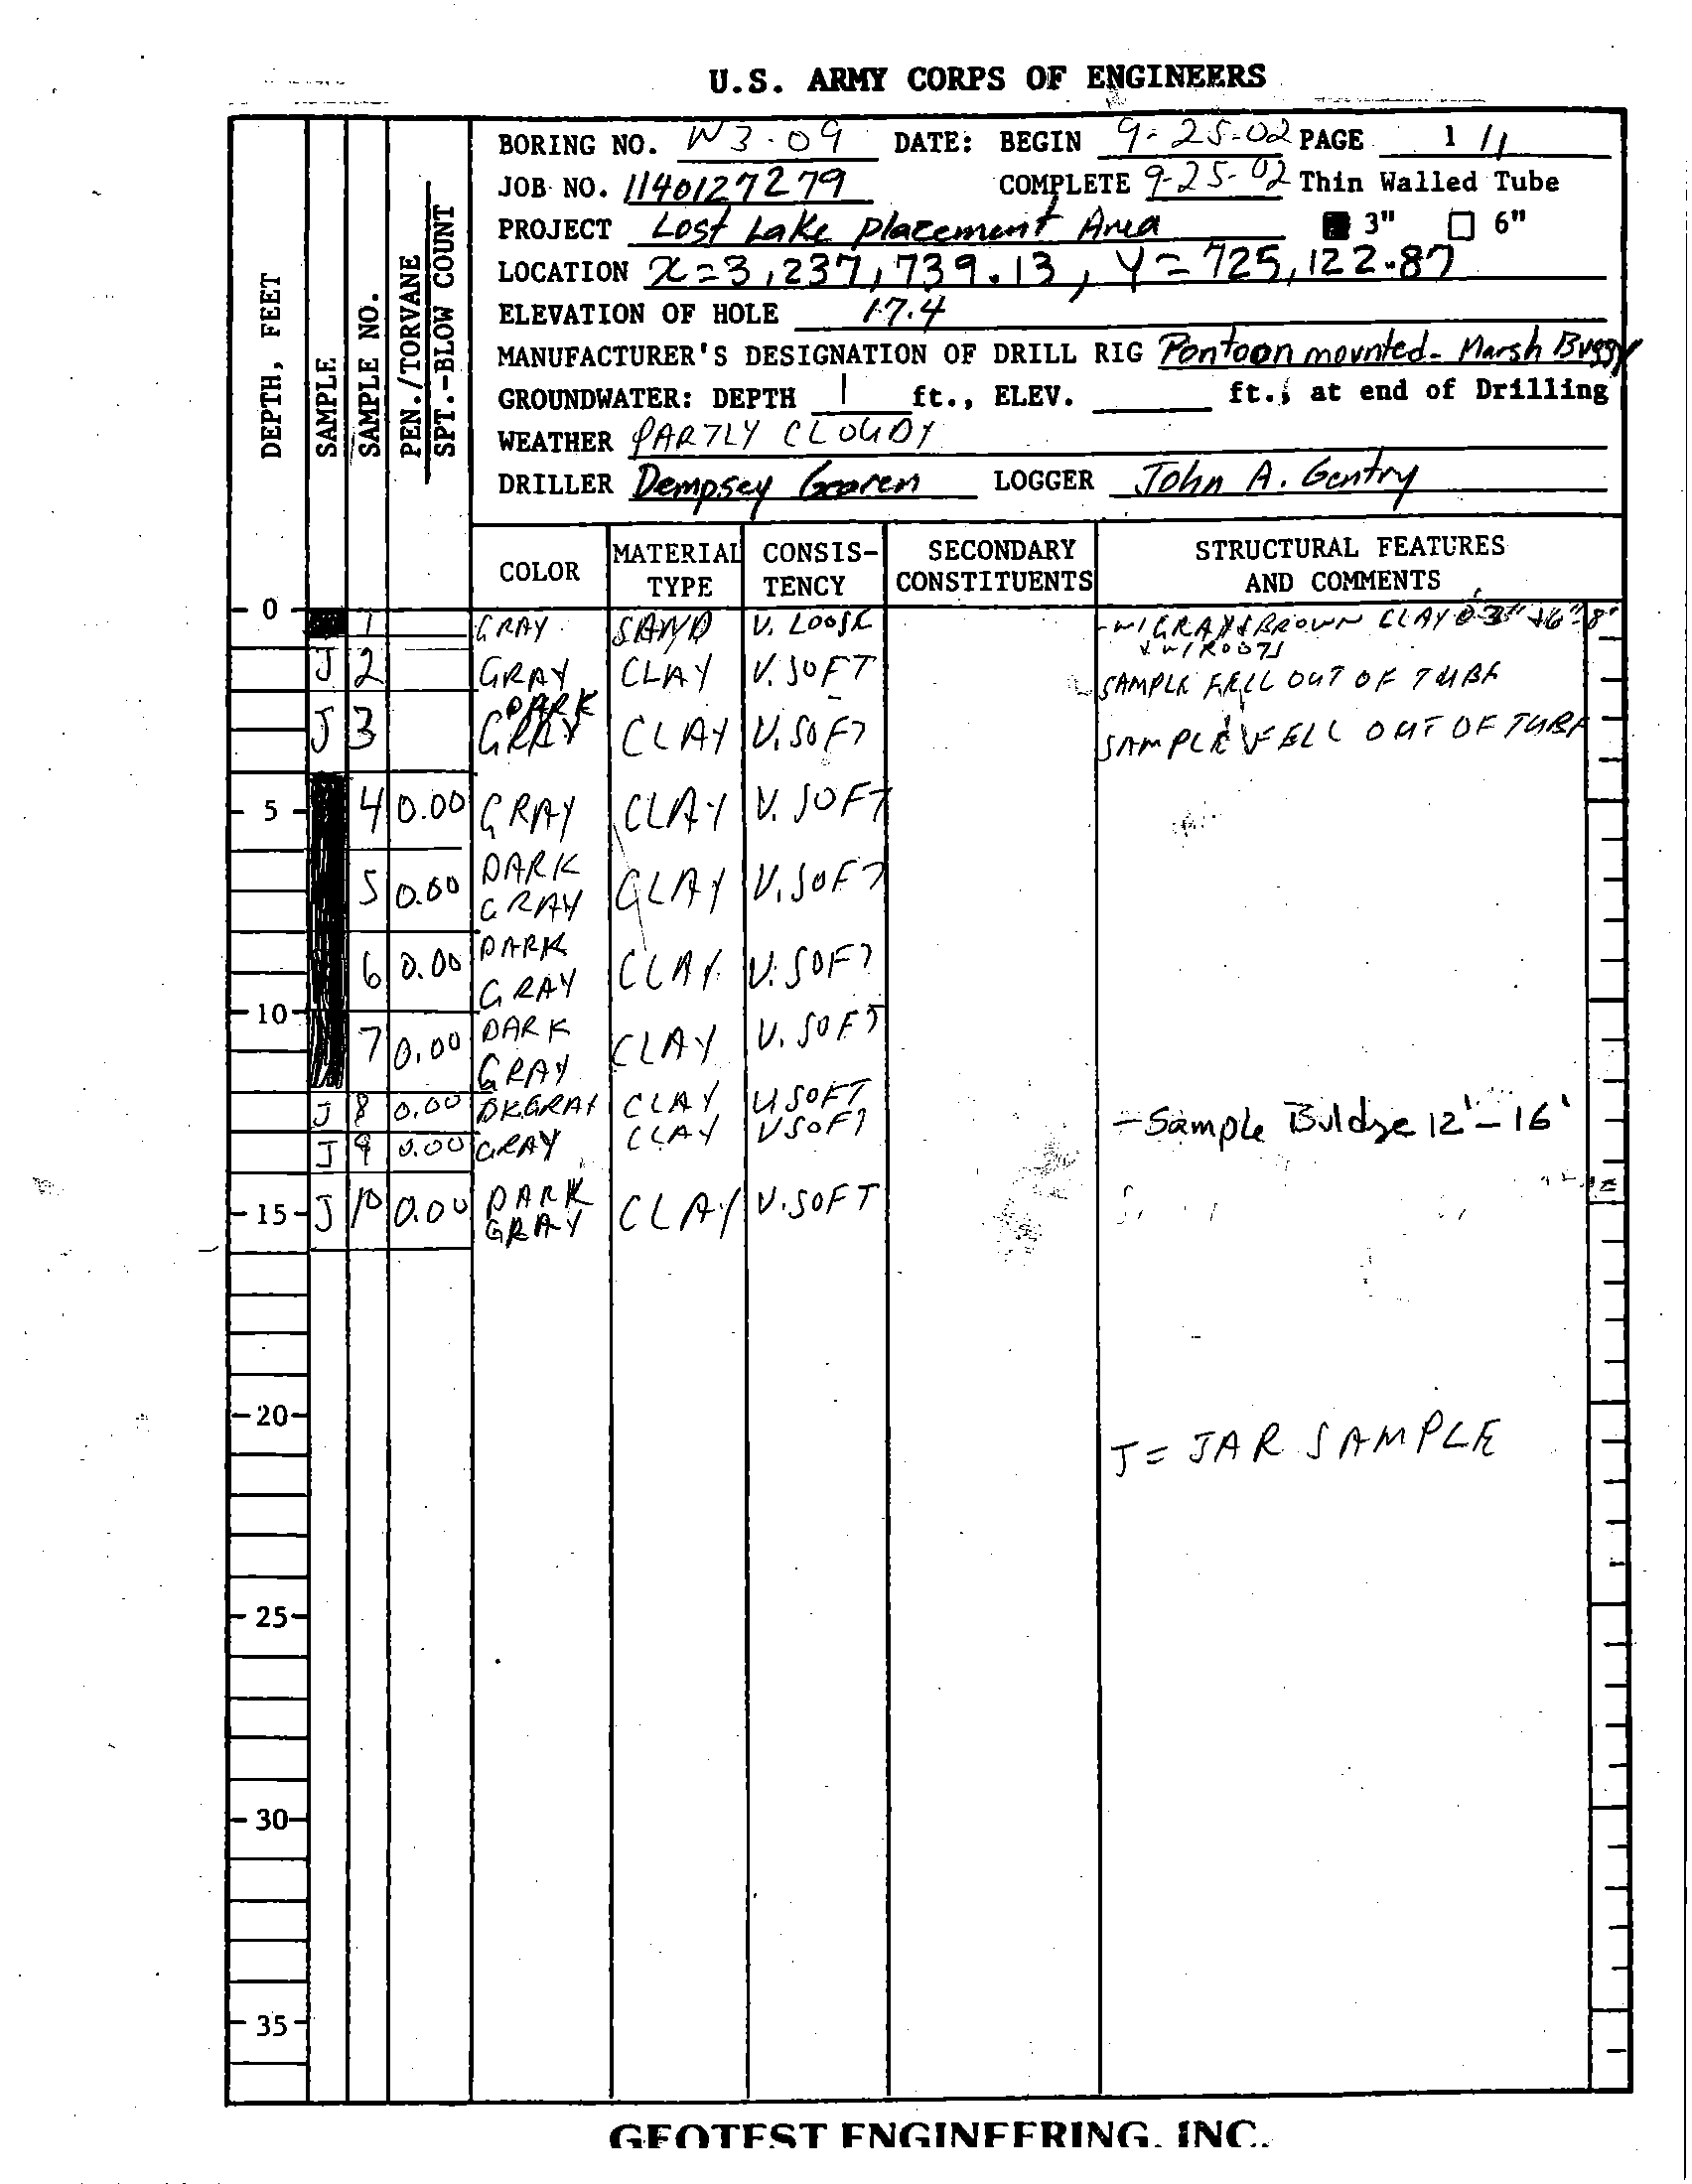 U.S. ARMY CORPS OF ENGINEERS
BORING NO. W3-09 DATE: BEGIN 9-25-02 PAGE 1/1
JOB NO. 1140127279 COMPLETE 9-25-02 Thin Walled Tube
PROJECT Lost Lake Placement Area 3" 6"
LOCATION X=3,237,739.13, Y=725,122.87
ELEVATION OF HOLE 17.4
MANUFACTURER'S DESIGNATION OF DRILL RIG Pontoon mounted- Marsh Buggy
GROUNDWATER: DEPTH 1 ft., ELEV. ft., at end of Drilling
WEATHER PARTLY CLOUDY
DRILLER Dempsey LOGGER John A. Gentry
DEPTH, FEET
SAMPLE
SAMPLE NO.
PEN./TORVANE
SPT.-BLOW COUNT
COLOR MATERIAL TYPE CONSIS-TENCY SECONDARY CONSTITUENTS STRUCTURAL FEATURES AND COMMENTS
0 1 GRAY SAND V. LOOSE -W/GRAY & BROWN CLAY @ 6"-8"
& W/ROOTS
J 2 GRAY CLAY V. SOFT SAMPLE FELL OUT OF TUBE
J 3 DARK GRAY CLAY V. SOFT SAMPLE FELL OUT OF TUBE
5 4 0.00 GRAY CLAY V. SOFT
5 0.00 DARK GRAY CLAY V. SOFT
6 0.00 DARK GRAY CLAY V. SOFT
10
7 0.00 DARK GRAY CLAY V. SOFT
J 8 0.00 DKGRAY CLAY V SOFT
-Sample Buldge 12'-16'
J 9 0.00 GRAY CLAY V SOFT
15 J 10 0.00 DARK GRAY CLAY V. SOFT
20
J = JAR SAMPLE
25
30
35
GEOTEST ENGINEERING, INC.